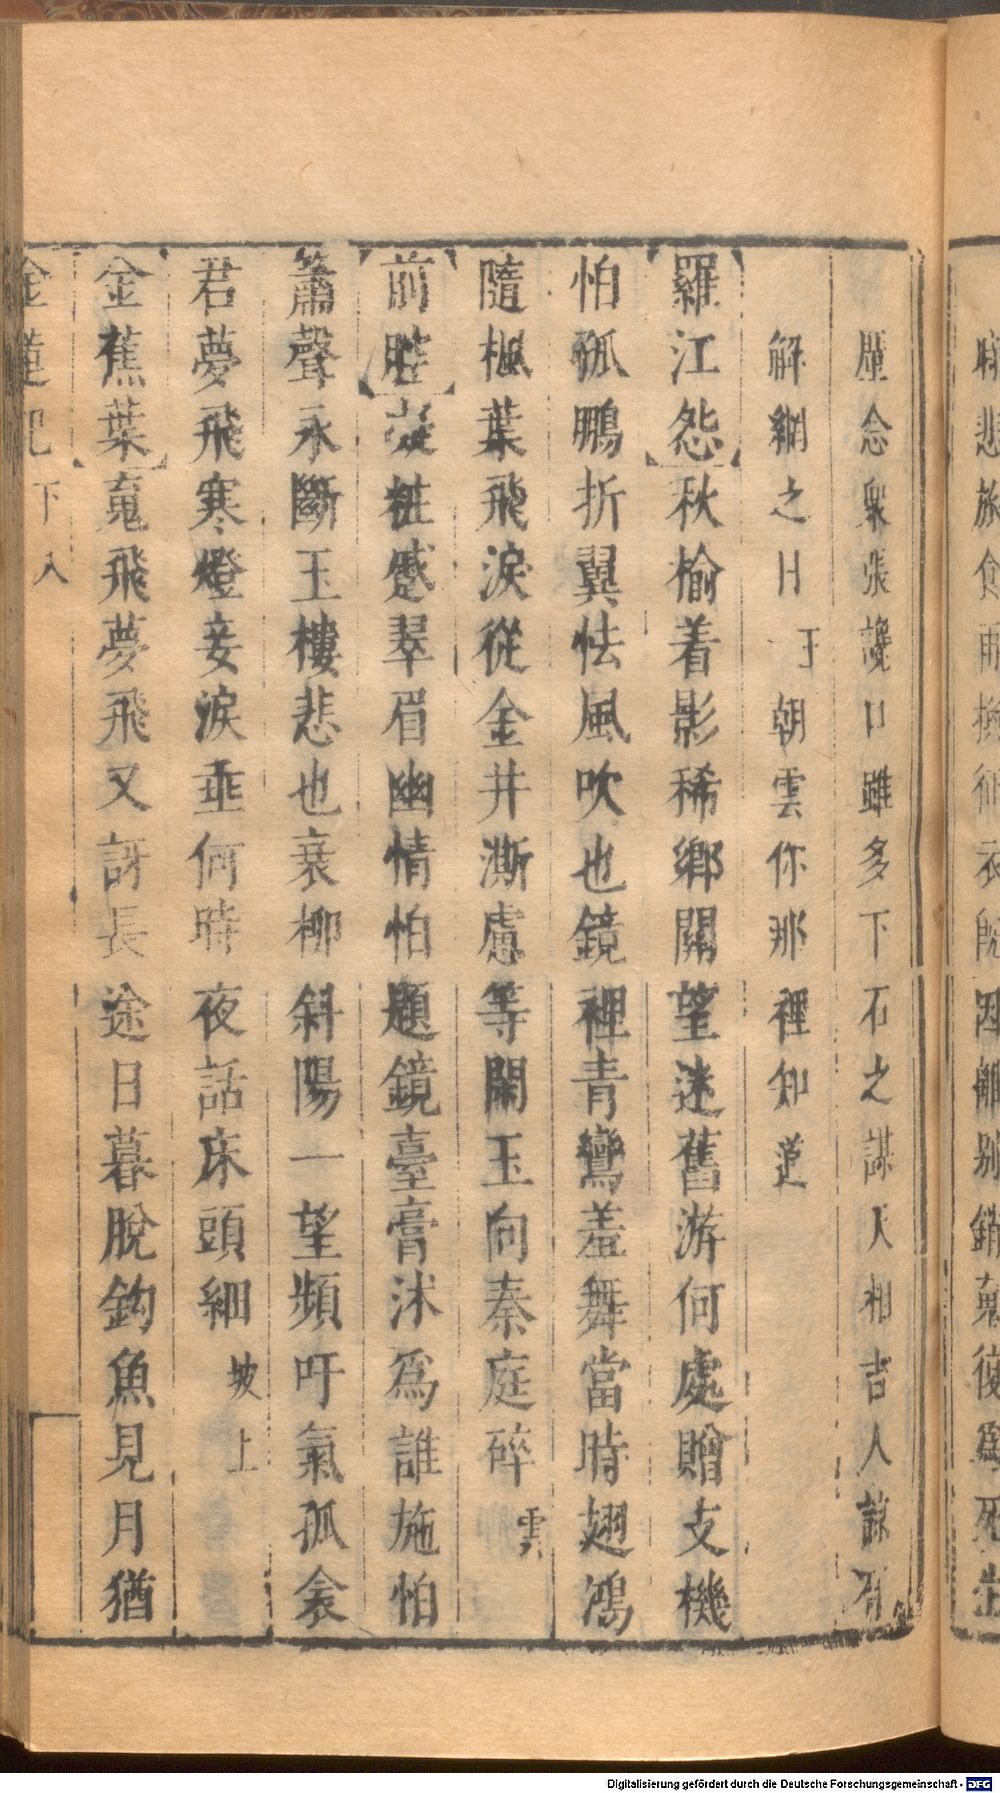 塵念衆張讒口雖多下石之謀天相吉人諒有
解網之日
王朝雲你那裡知道
【羅江怨】秋榆着影稀鄉關望迷舊游何處贈支機
怕孤鵬折翼怯風吹也鏡裡青鸞羞舞當時翅鴻
隨楓葉飛淚從金井澌慮等閑玉向秦庭碎
雲
【前腔】淡粧蹙翠眉幽情怕題鏡臺膏沐爲誰施怕
簫聲永斷玉樓悲也衰柳斜陽一望頻吁氣孤衾
君夢飛寒燈妾淚垂何時夜話床頭細
坡上
【金蕉葉】䰟飛夢飛又訝長途日暮脫鈎魚見月猶
金蓮記 下 八
悲旅
衣
因離别銷䰟復爲死生
Digitalisierung gefördert durch die Deutsche Forschungsgemeinschaft - DFG